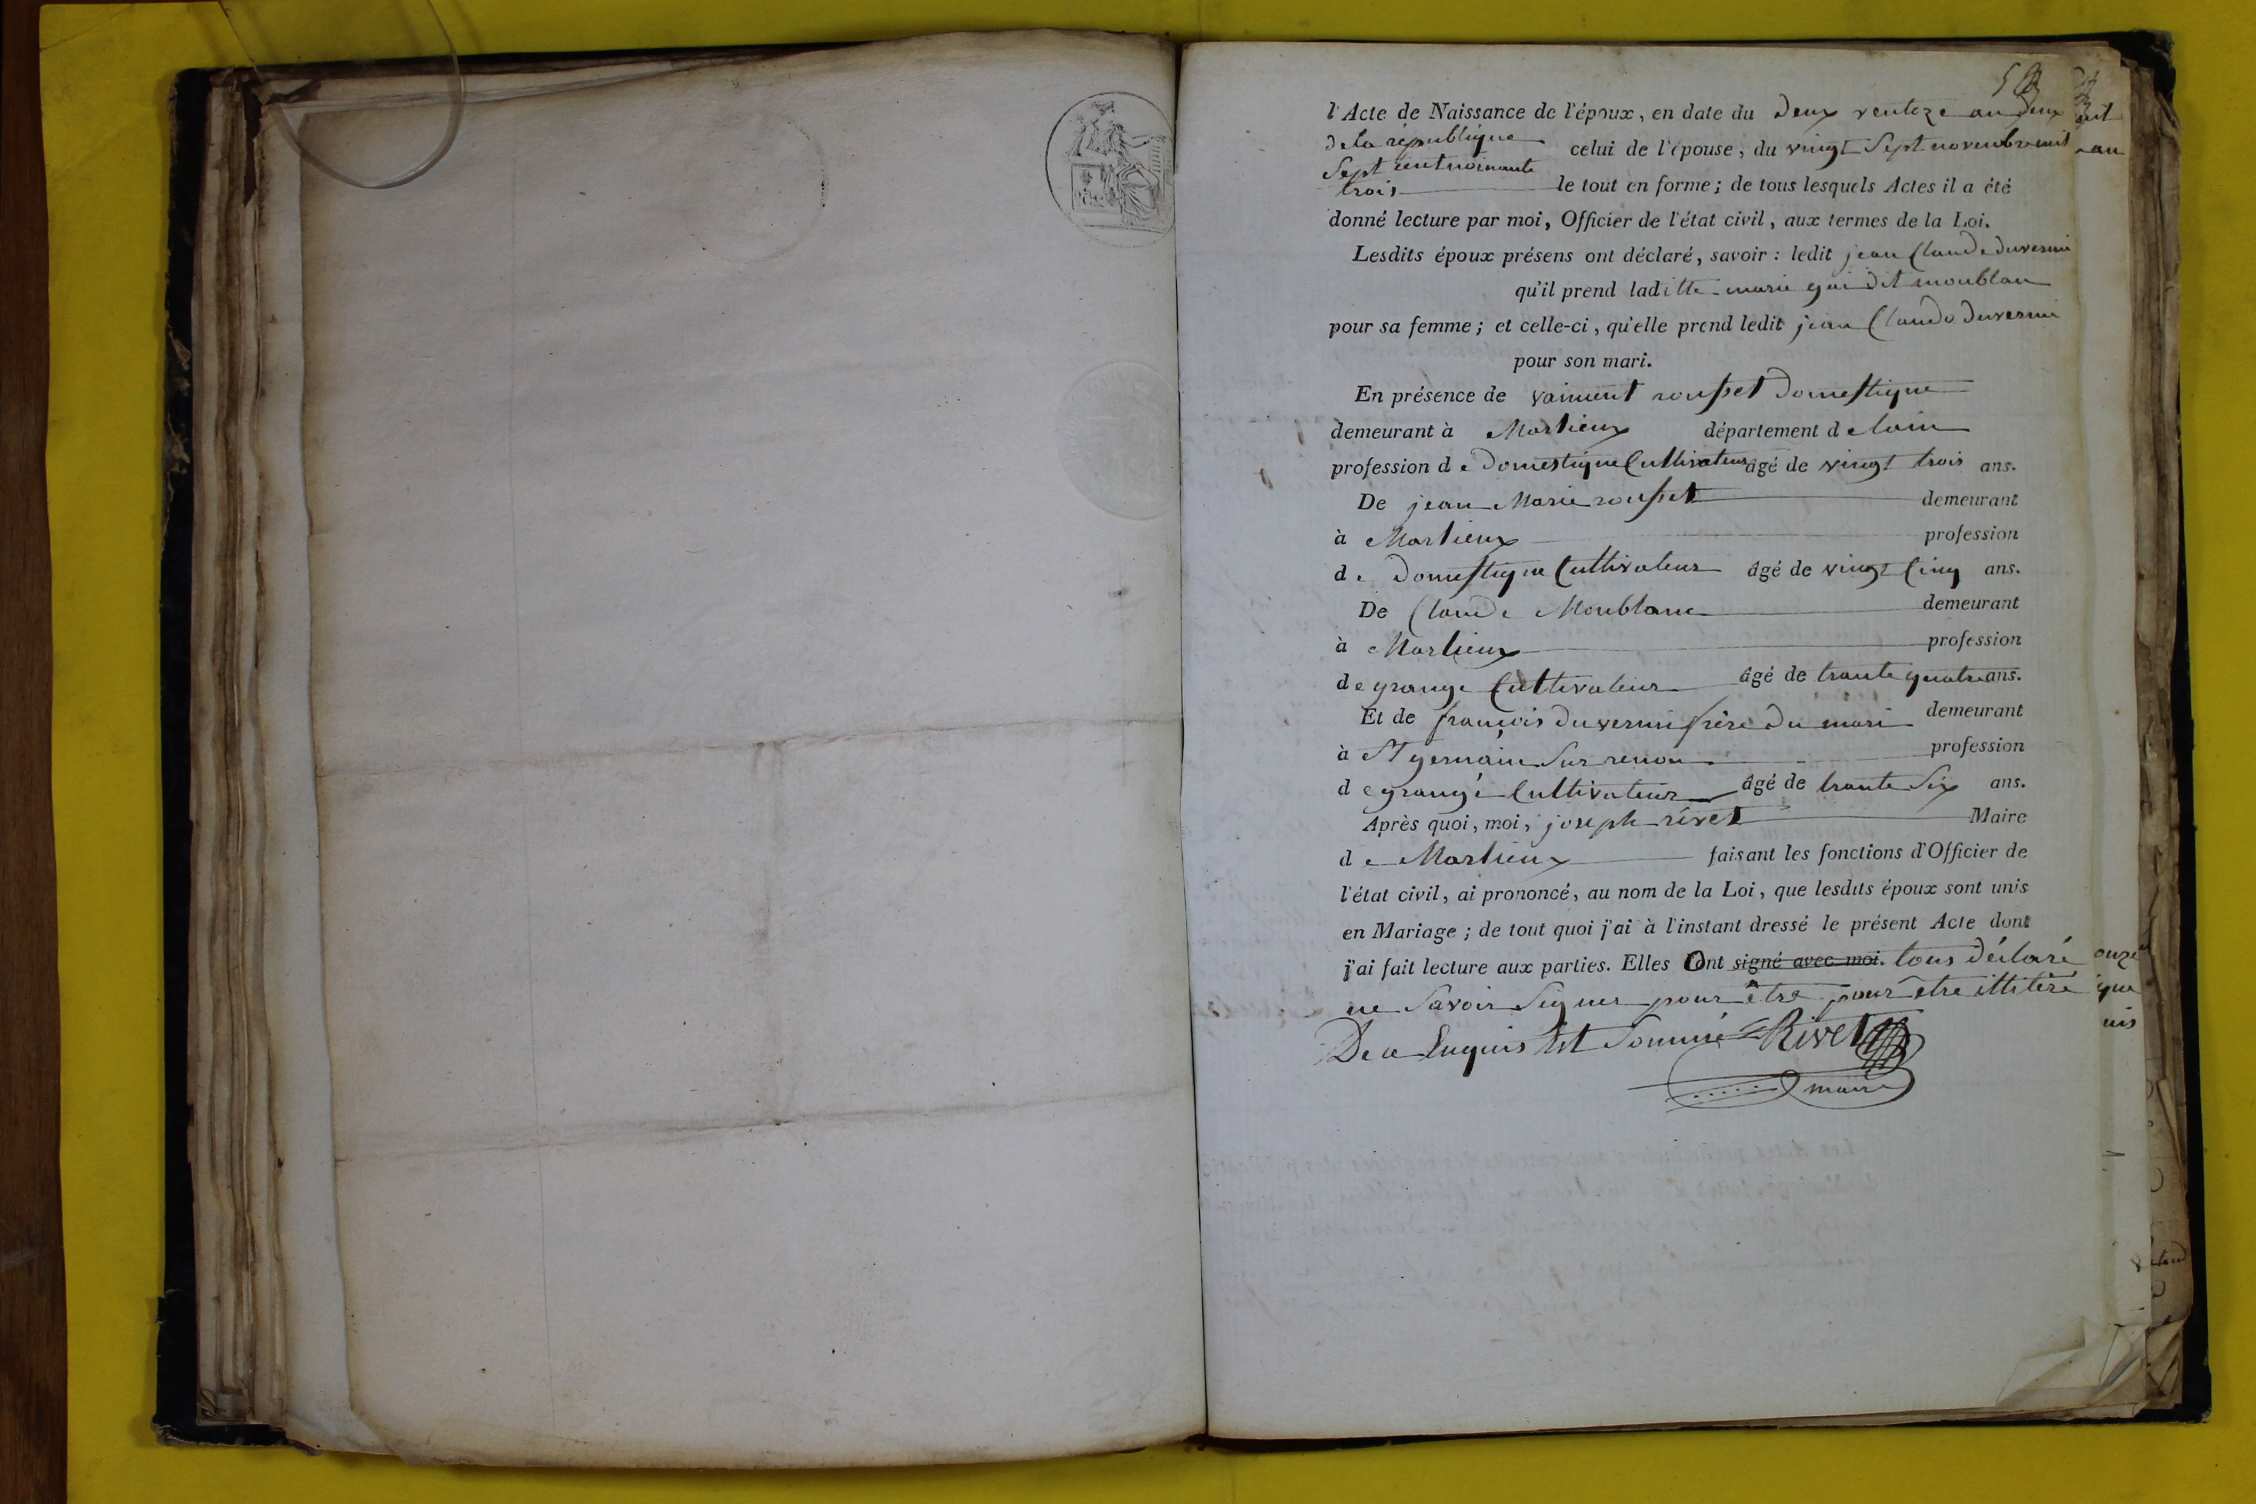 l'Acte de Naissance de l'époux, en date du deux ventoze an deux
de la république celui de l'épouse, du vingt Sept novembre mil
Sept cent noinante
trois le tout en forme; de tous lesquels Actes il a été
donné lecture par moi, Officier de l'état civil, aux termes de la Loi.
Lesdits époux présens ont déclaré, savoir : ledit jean Claude duverni
qu'il prend laditte marie gui dit moublan
pour sa femme; et celle-ci, qu'elle prend ledit jean Claude duverni
pour son mari.
En présence de rousset domestique
demeurant à Marlieux département de lain
profession de domestique Cultivateur âgé de vingt trois ans.
De jean Marie rousset demeurant
à Marlieux profession
de domestique Cultivateur âgé de vingt Cinq ans.
De Claude Moublanc demeurant
à Marlieux profession
de grangé Cultivateur âgé de trante quatre ans.
Et de françois duverni frère du mari demeurant
à St germain Sur renon profession
de grangé Cultivateur âgé de trante Six ans.
Après quoi, moi, joseph rivet Maire
de Marlieux faisant les fonctions d'Officier de
l'état civil, ai prononcé, au nom de la Loi, que lesdits époux sont unis
en Mariage; de tout quoi j'ai à l'instant dressé le présent Acte dont
j'ai fait lecture aux parties. Elles Ont signé avec moi. tous déclaré
ne Savoir Signer pour être pour etre illitéré
De ce Enquis Et Sommé Rivet
maire